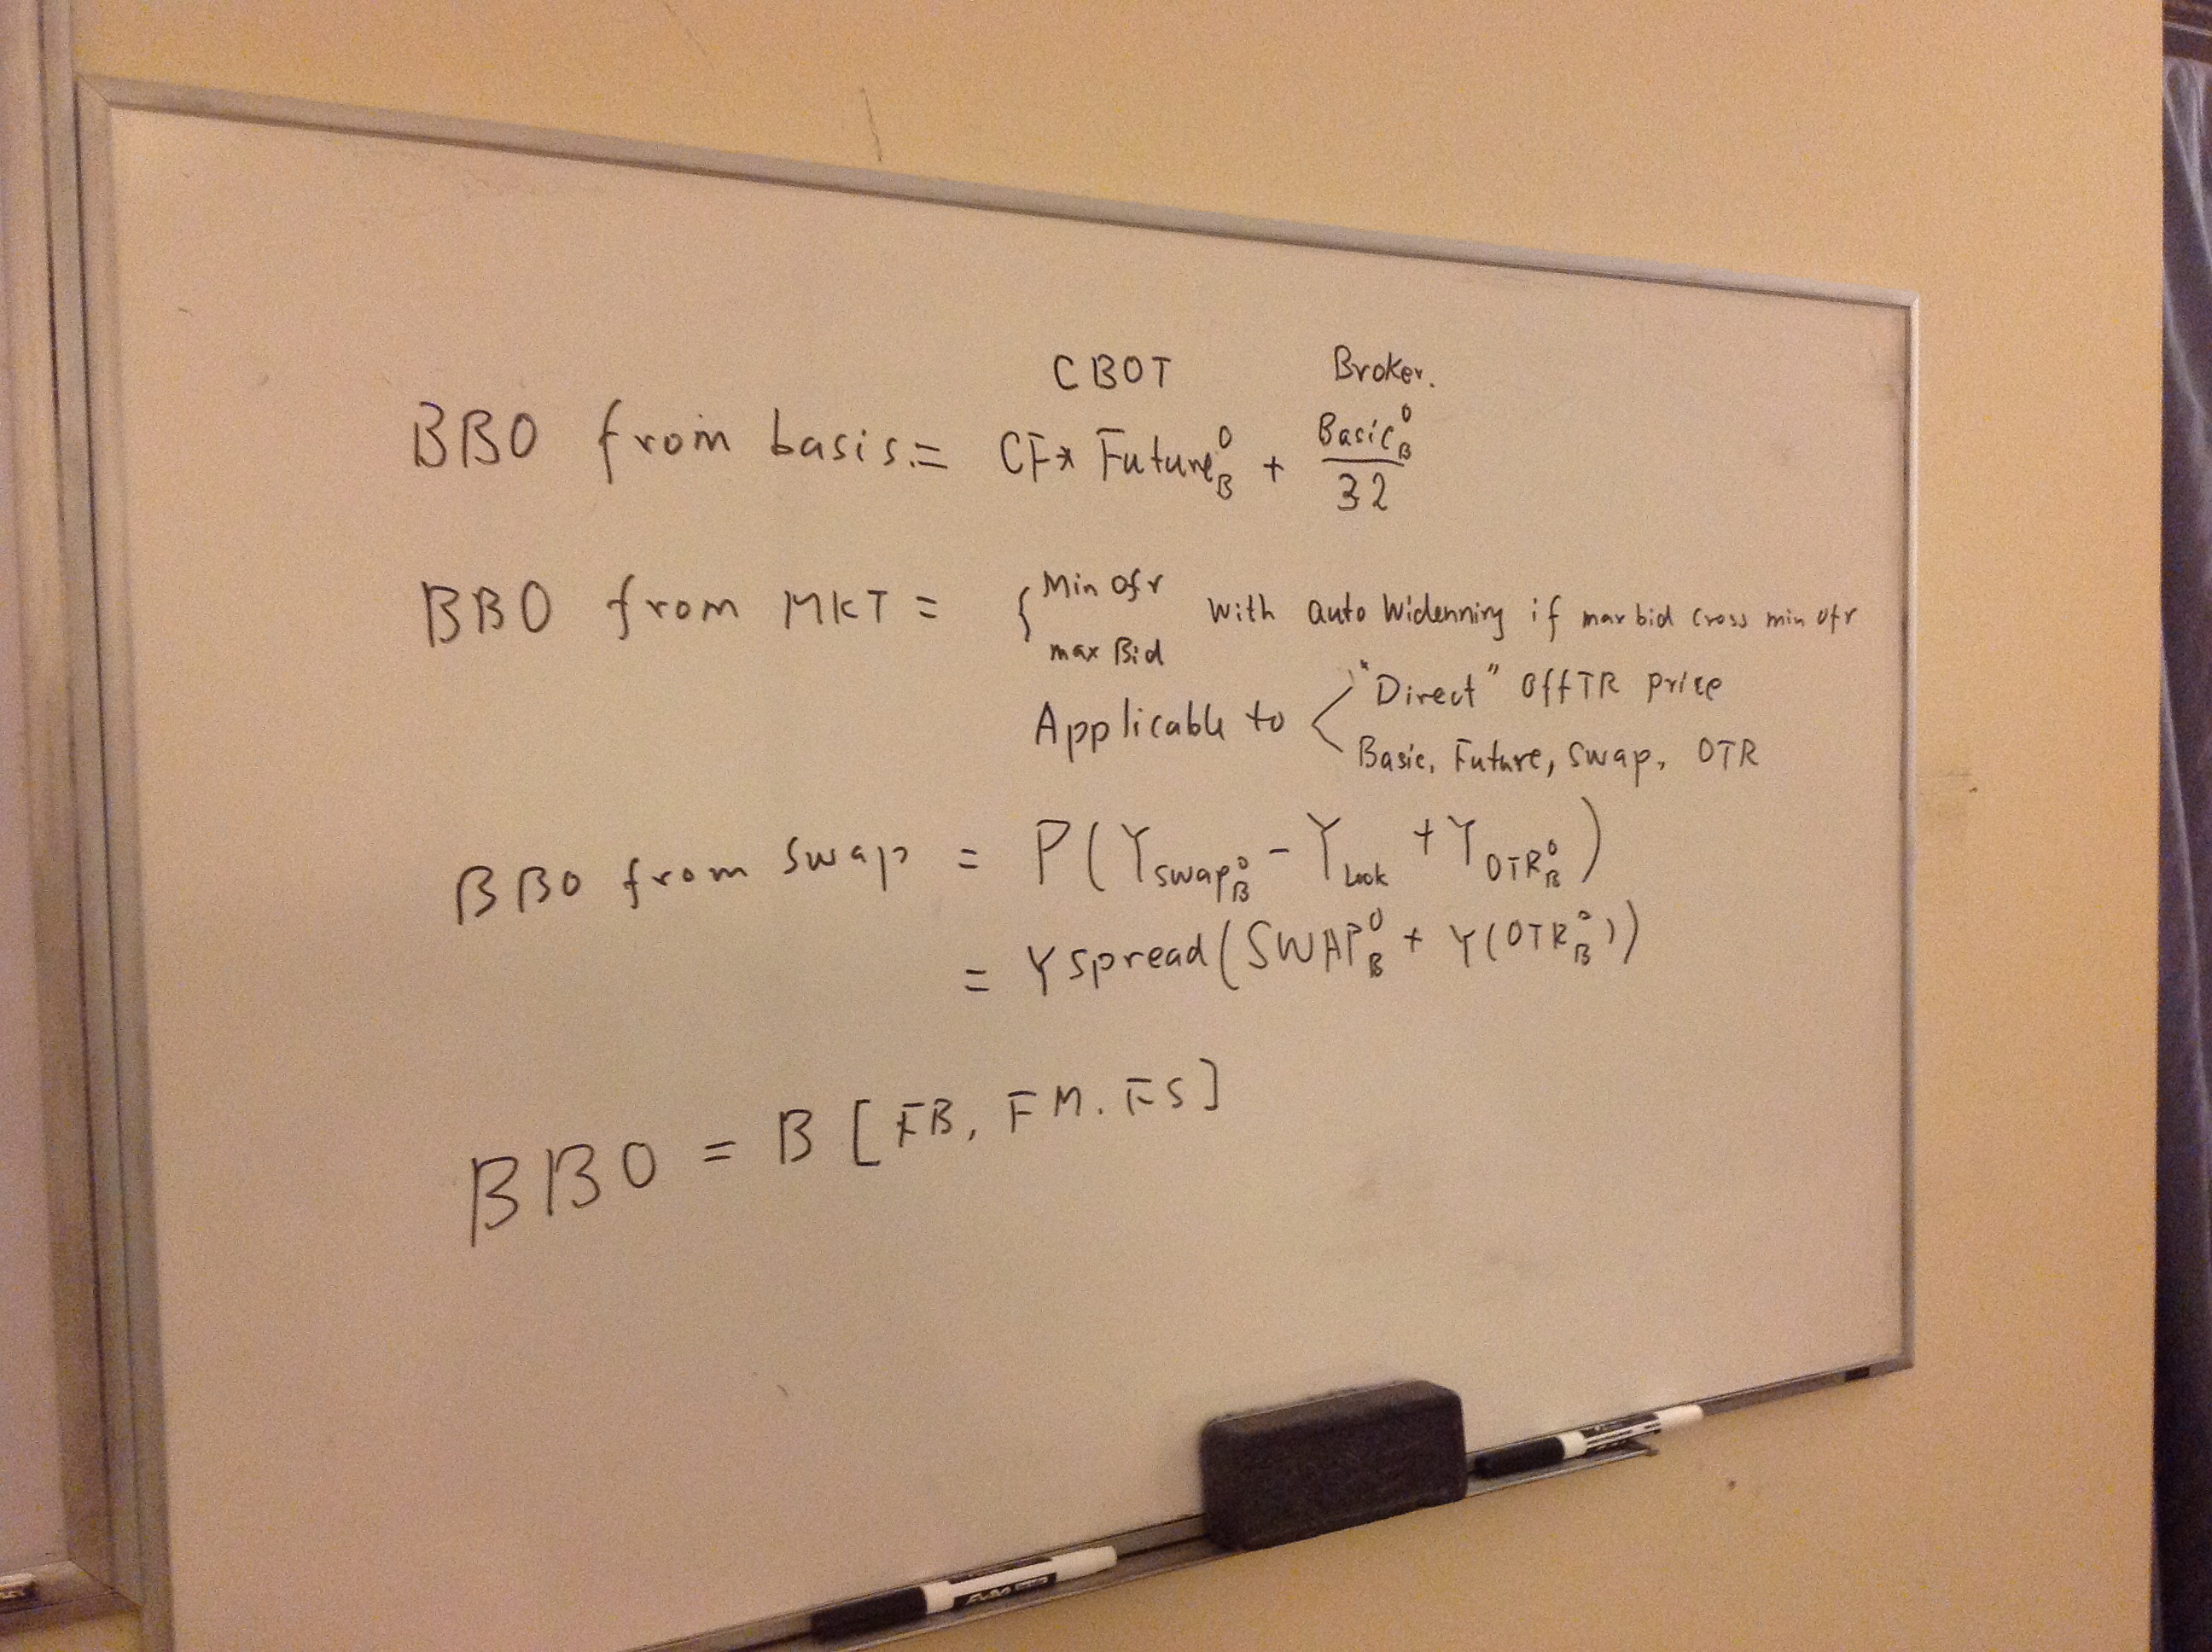 CBOT Broker.
BBO from basis.= CF* Future^O_B + Basic^O_B / 32
BBO from MKT = { Min Ofr
max Bid
with auto Widenning if max bid cross min ofr
Applicable to < "Direct" OffTR price
Basic, Future, Swap, OTR
BBO from Swap = P(Y_Swap^O_B - Y_Lock + Y_OTR^O_B)
= Y Spread(SWAP^O_B + Y(OTR^O_B))
BBO = B [FB, FM. FS]